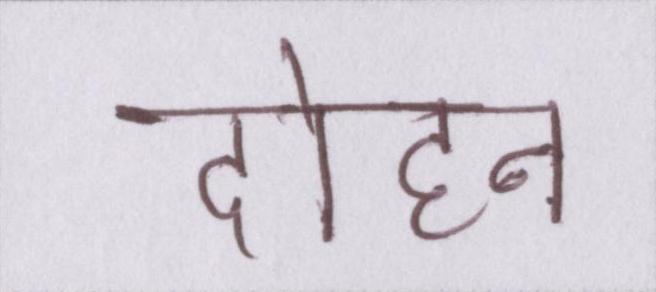 दोहन